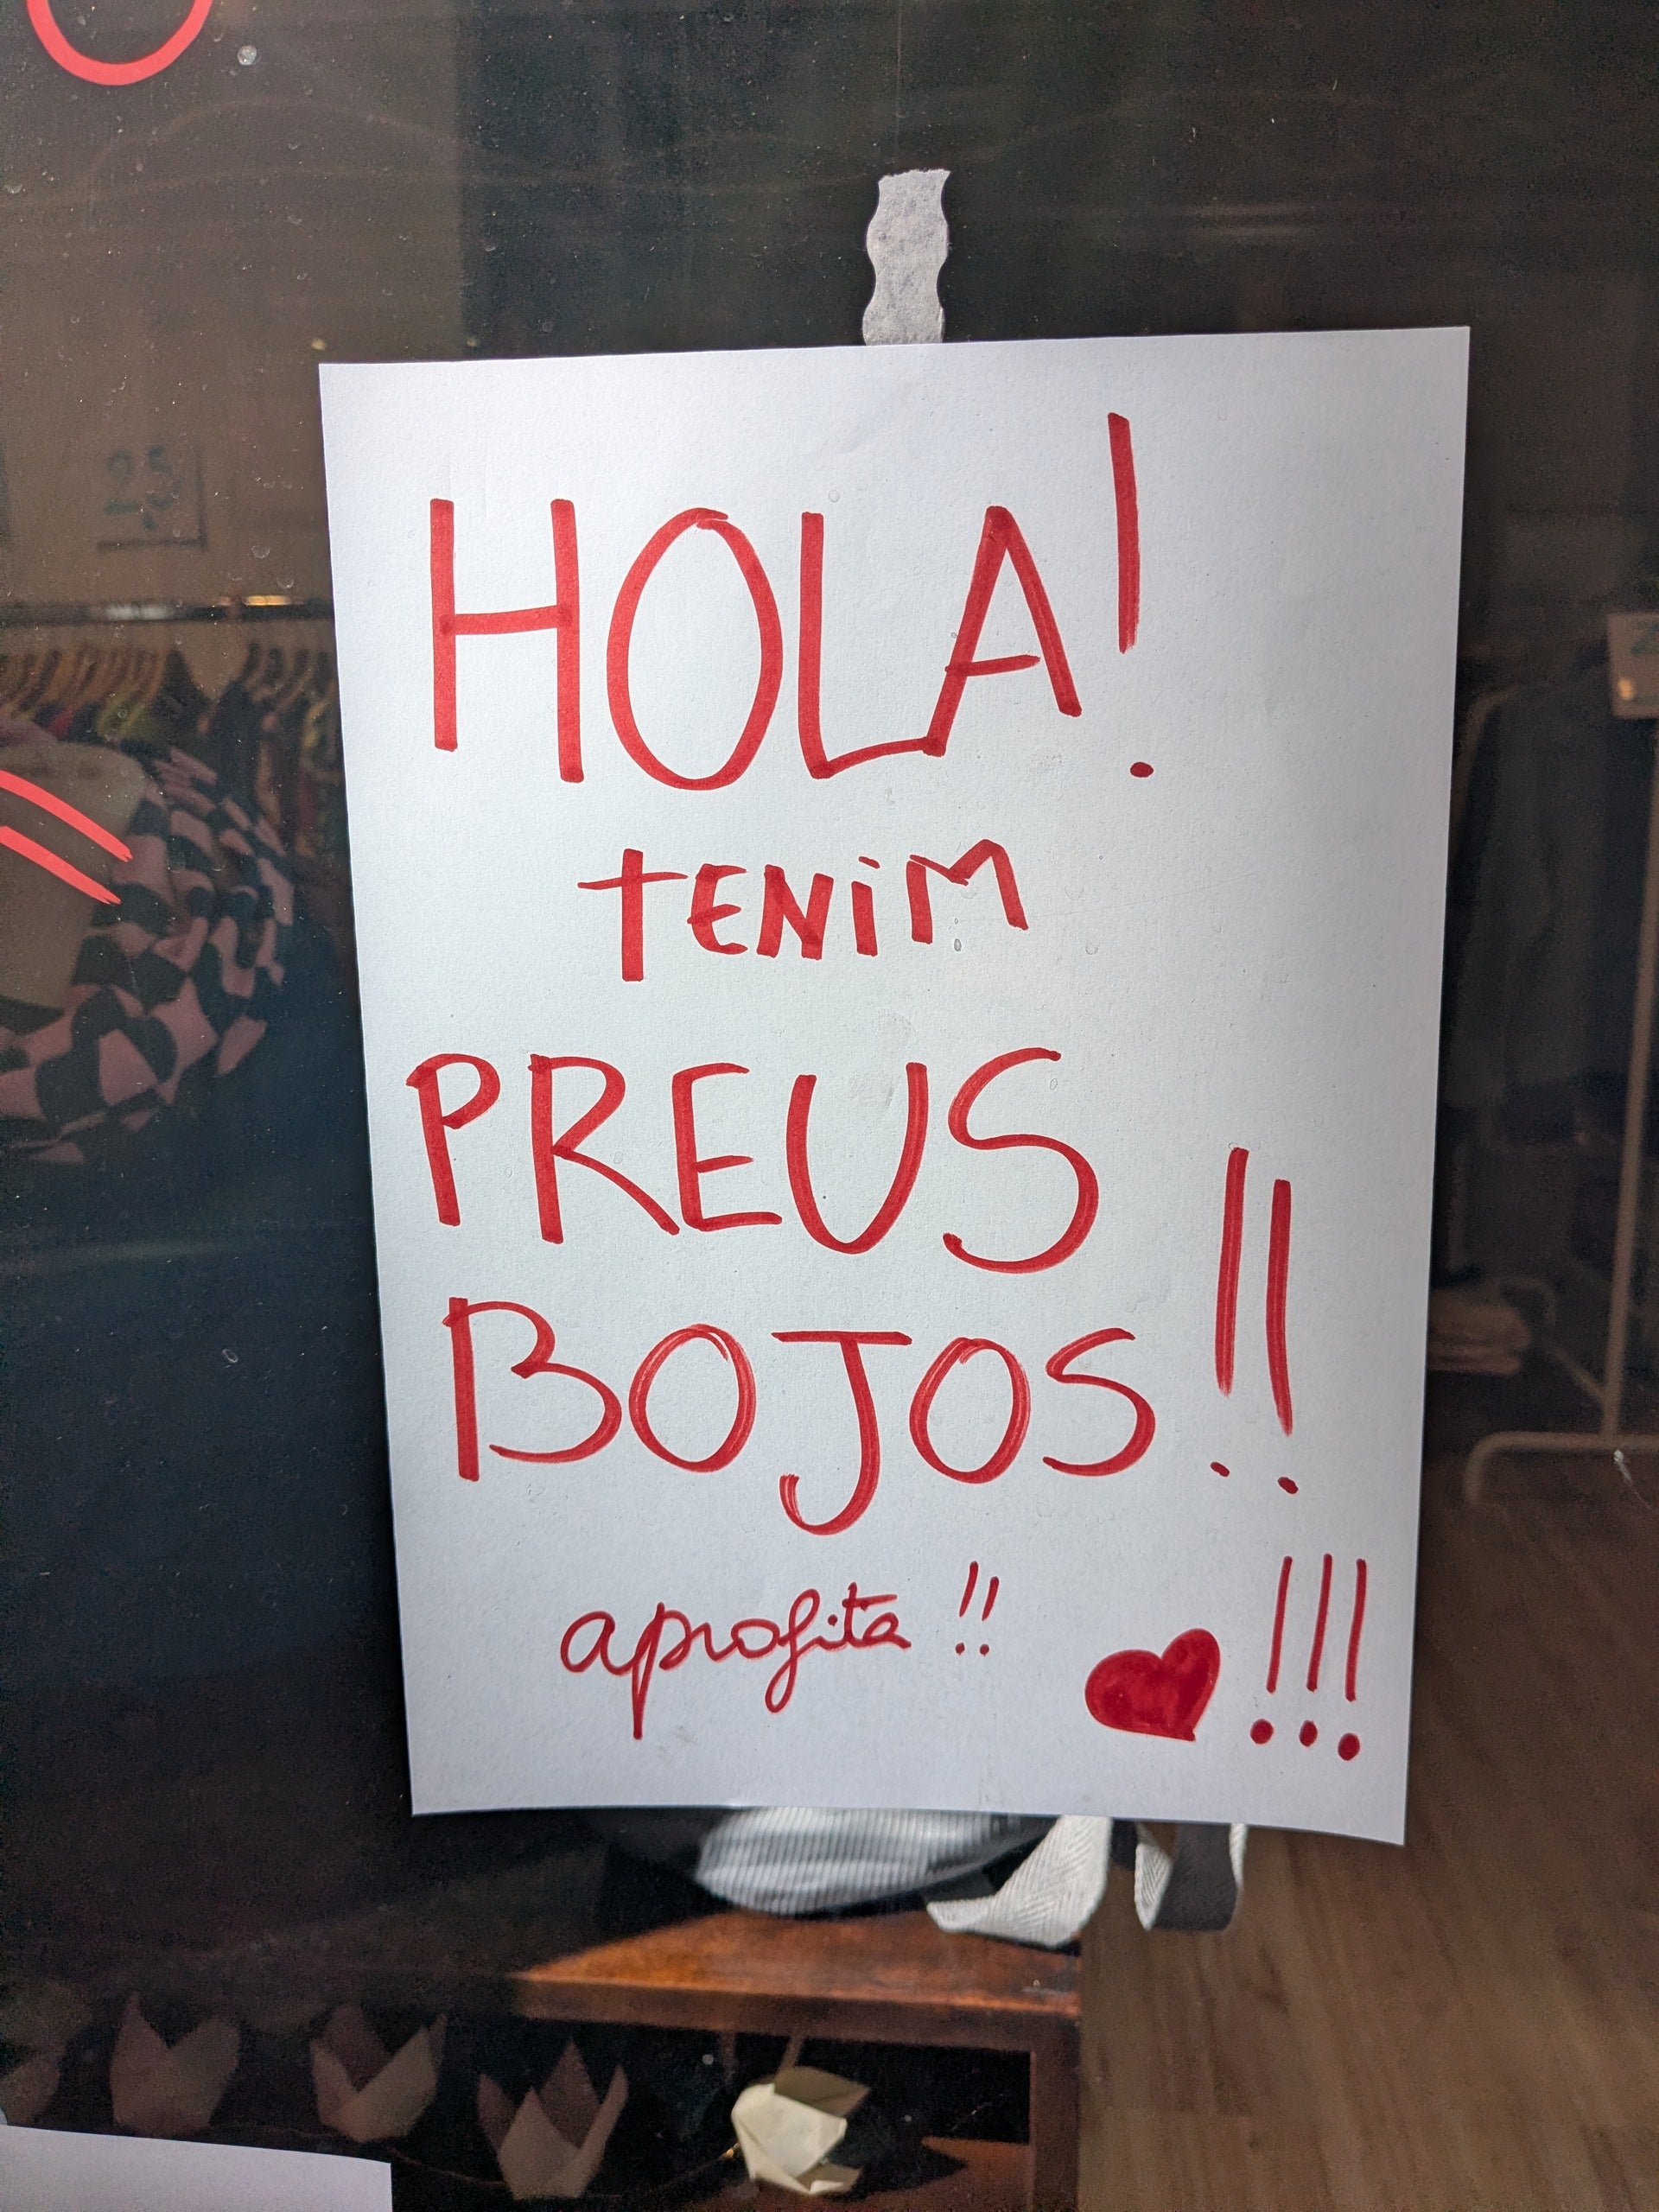 HOLA!
TENiM
PREUS
BOJOS!!
aprofita!! ♥!!!
2,5